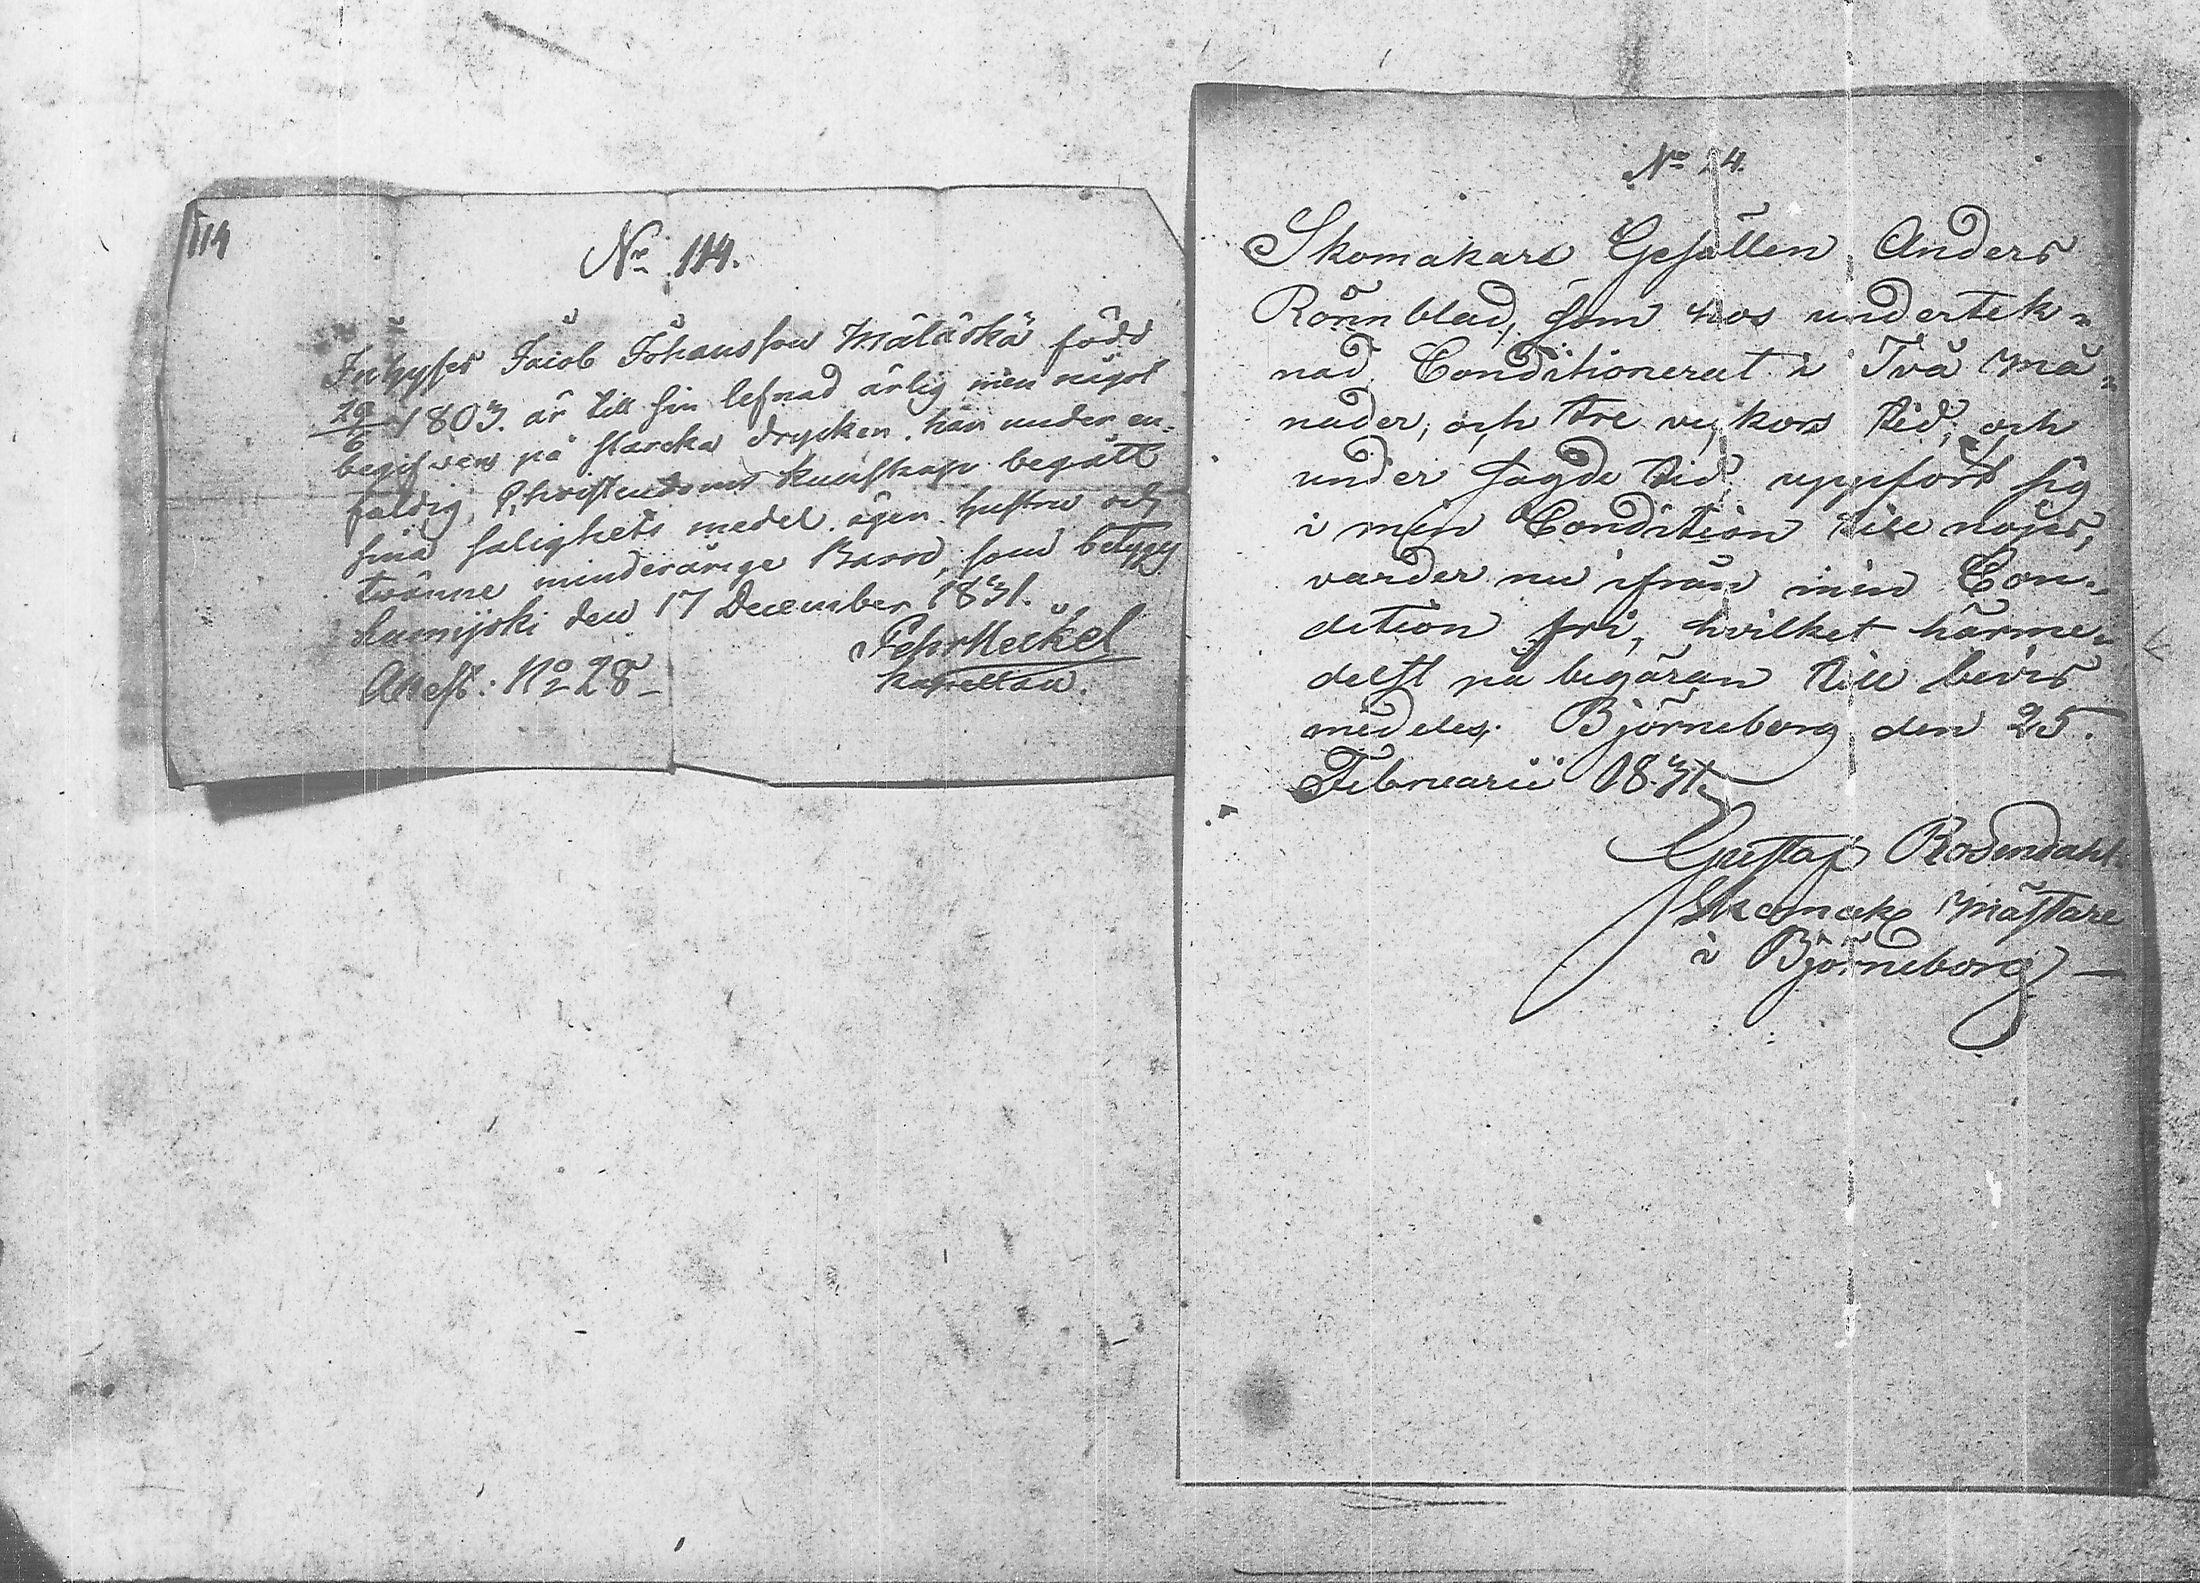 114
No 114.
Inhyses Jacob Johansson Mäläskä född
19/6 1803. är till sin lefnad ärlig men något
begifven på starcka drycken. han under en-
faldig Christendoms kunskap begått
sina salighets medel. ägen hustru och
tvänne minderårige Barn, som betygg
den 17 December 1831.
Pehr Heikel
Kapellan.
Attest: No 28
No 24.
Skomakare Gesällen Anders
Rönnblad, som hos undertek-
nad Conditionerat i Två må-
nader, och tre vickors tid, och
under sagde tid uppfört sig
i min Condition till nöjes,
varder nu ifrån min Con-
dition fri, hvilket härme-
delst på begäran till bevis
medeles. Björneborg den 25.
Februarii 1831.
Gustaf Rosendahl
Skomak Mästare
i Björneborg